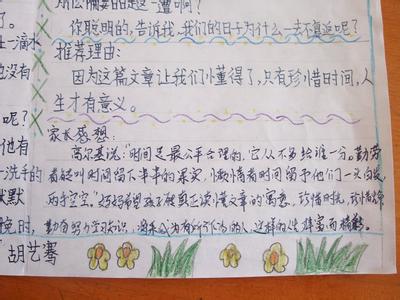 那么偏要的是这一遭啊?
你聪明的,告诉我,我们的日子为什么一去不复返呢?
推荐理由:
因为这篇文章让我们懂得了,只有珍惜时间,人
生才有意义。
家长感想:
高尔基说:"时间是最公平合理的,它从不多给谁一分。勤劳
者能叫时间留下串串的果实,懒惰者时间留予他们一头白发,
两手空空。"好好希望孩子能真正读懂文章的寓意,珍惜时机,珍惜生命
勤奋努力学习知识,将来成为有所作为的人,这样的人生丰富而精彩。
了。
上一滴水
也没有
呢?
他有
洗手的
默默
晚时,
胡艺骞